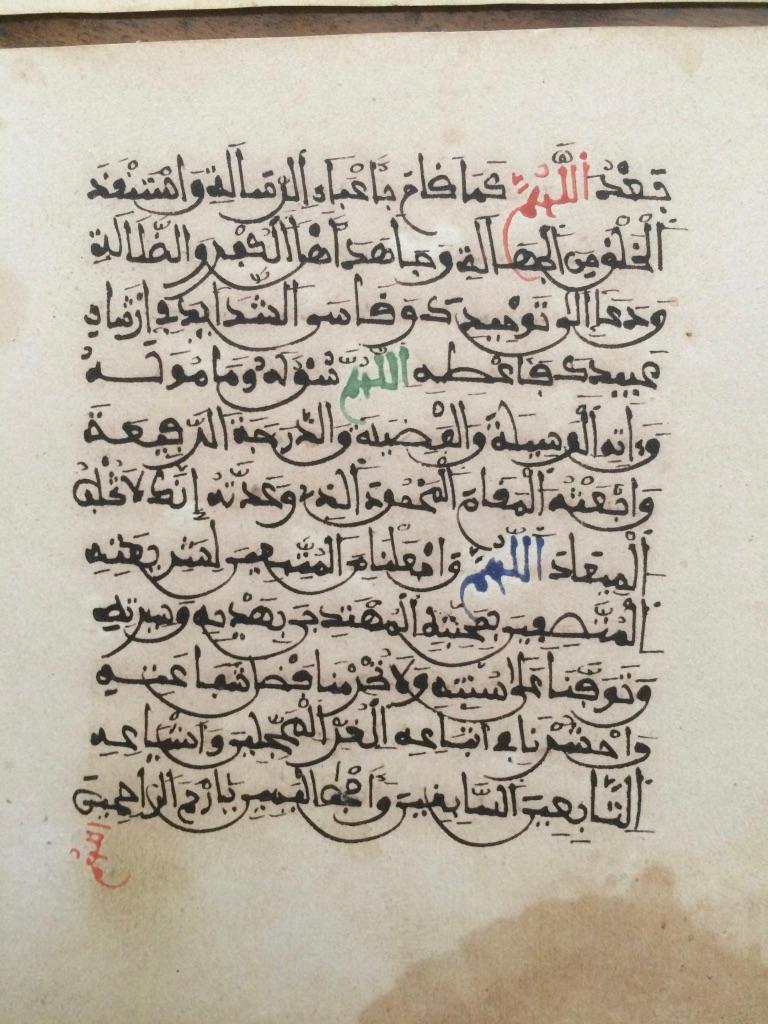 بَعْدُ اللَّهُمَّ كما قام بأعباء الرسالة واستنقذ
الخلق من الجهالة وجاهد أهل الكفر والضلالة
ودعا إلى توحيدك وقاسى الشدائد في إرشاد
عبيدك فأعطه اللَّهُمَّ سُؤْلَهُ ومأموله
وءاته الوسيلة والفضيلة والدّرجة الرّفيعة
وابعثه المقام المحمود الذي وعدته إنّك لا تخلف
الميعاد اللَّهُمَّ واجعلنا من المتّبعين لشريعته
المتّصفين بمحبّته المهتدين بهديه وسيرته
وتوفّنا على سنّته ولا تحرمنا فضل شفاعته
واحشرنا في أتباعه الغرّ المحجّلين وأشياعه
السّابقين وأصحاب اليمين يا أرحم الرّاحمين
اللهم